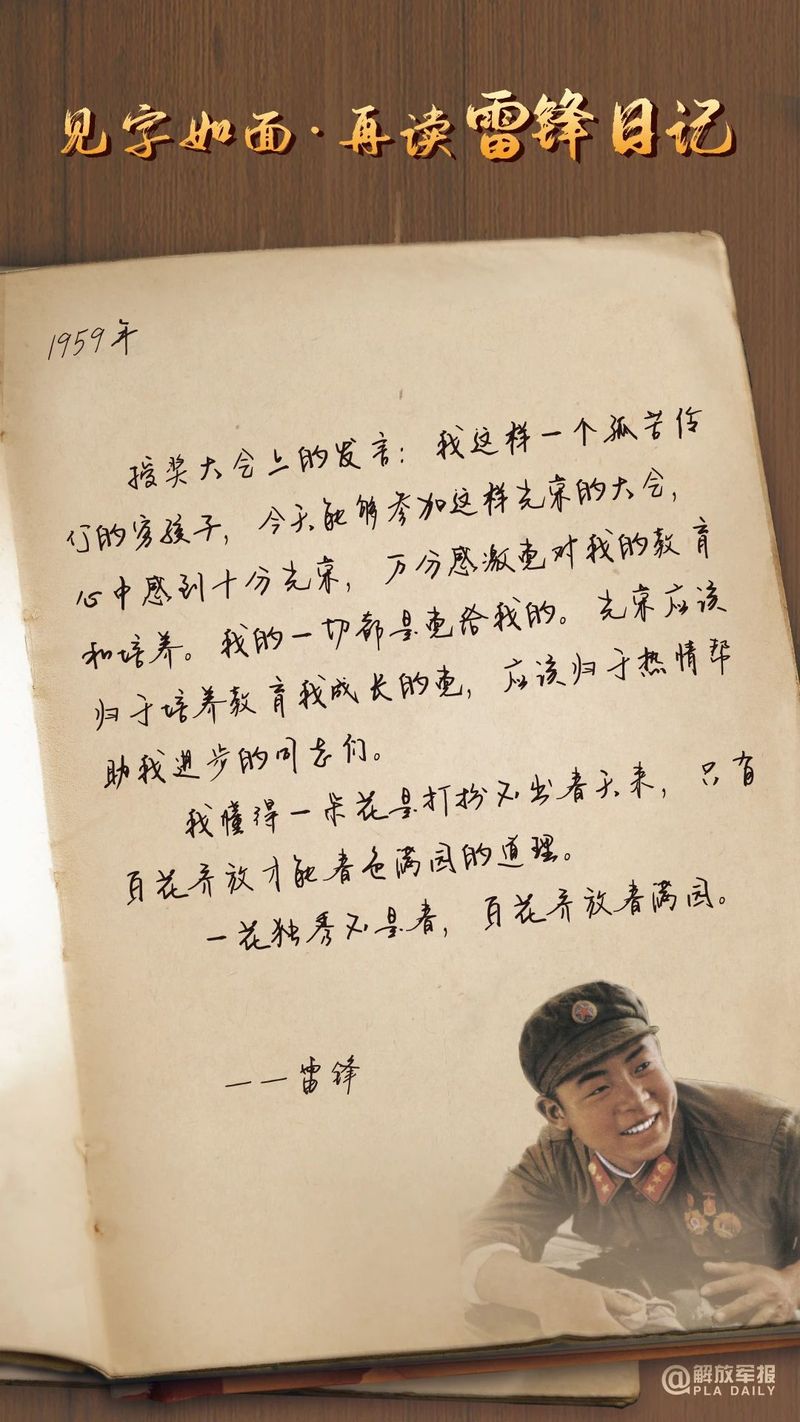 见字如面·再读雷锋日记
1959年
授奖大会上的发言：我这样一个孤苦伶
仃的穷孩子，今天能够参加这样光荣的大会，
心中感到十分光荣，万分感激党对我的教育
和培养。我的一切都是党给我的。光荣应该
归于培养教育我成长的党，应该归于热情帮
助我进步的同志们。
我懂得一朵花是打扮不出春天来，只有
百花齐放才能春色满园的道理。
一花独秀不是春，百花齐放春满园。
——雷锋
@解放军报
PLA DAILY